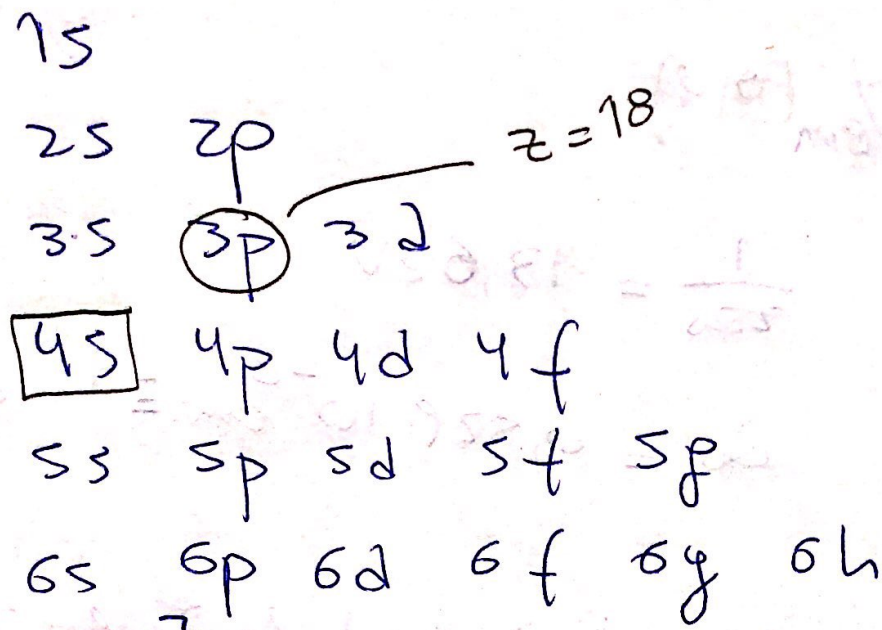 1s
2s 2p z = 18
3s 3p 3d
4s 4p 4d 4f
5s 5p 5d 5f 5g
6s 6p 6d 6f 6g 6h